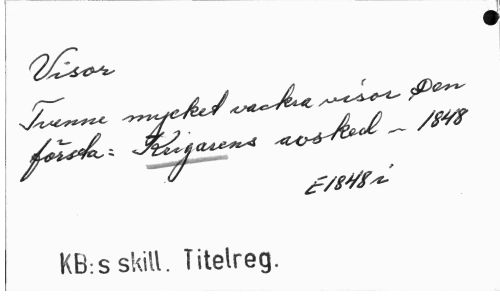 Visor
Tvenne mycket vackra visor Den
första: Krigarens avsked – 1848
E1848i
KB:s skill. Titelreg.